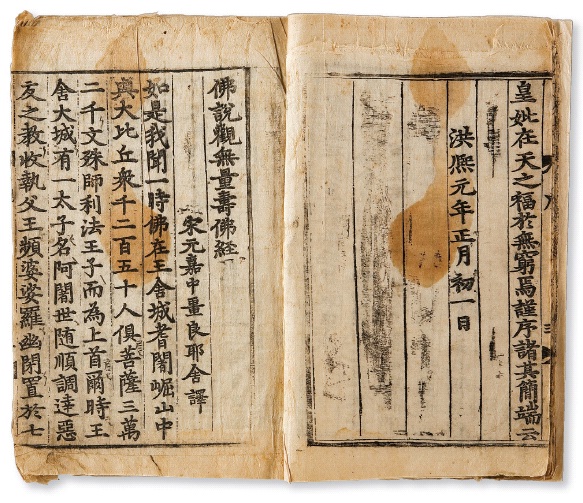 皇妣在天之福於無窮焉謹序諸其簡端云
洪熙元年正月初一日
佛說觀無量壽佛經
宋元嘉中畺良耶舍譯
如是我聞一時佛在王舍城耆闍崛山中
與大比丘衆千二百五十人俱菩薩三萬
二千文殊師利法王子而為上首爾時王
舍大城有 太子名阿闍世随順調達惡
友之教收執父王頻婆娑羅幽閉置於七